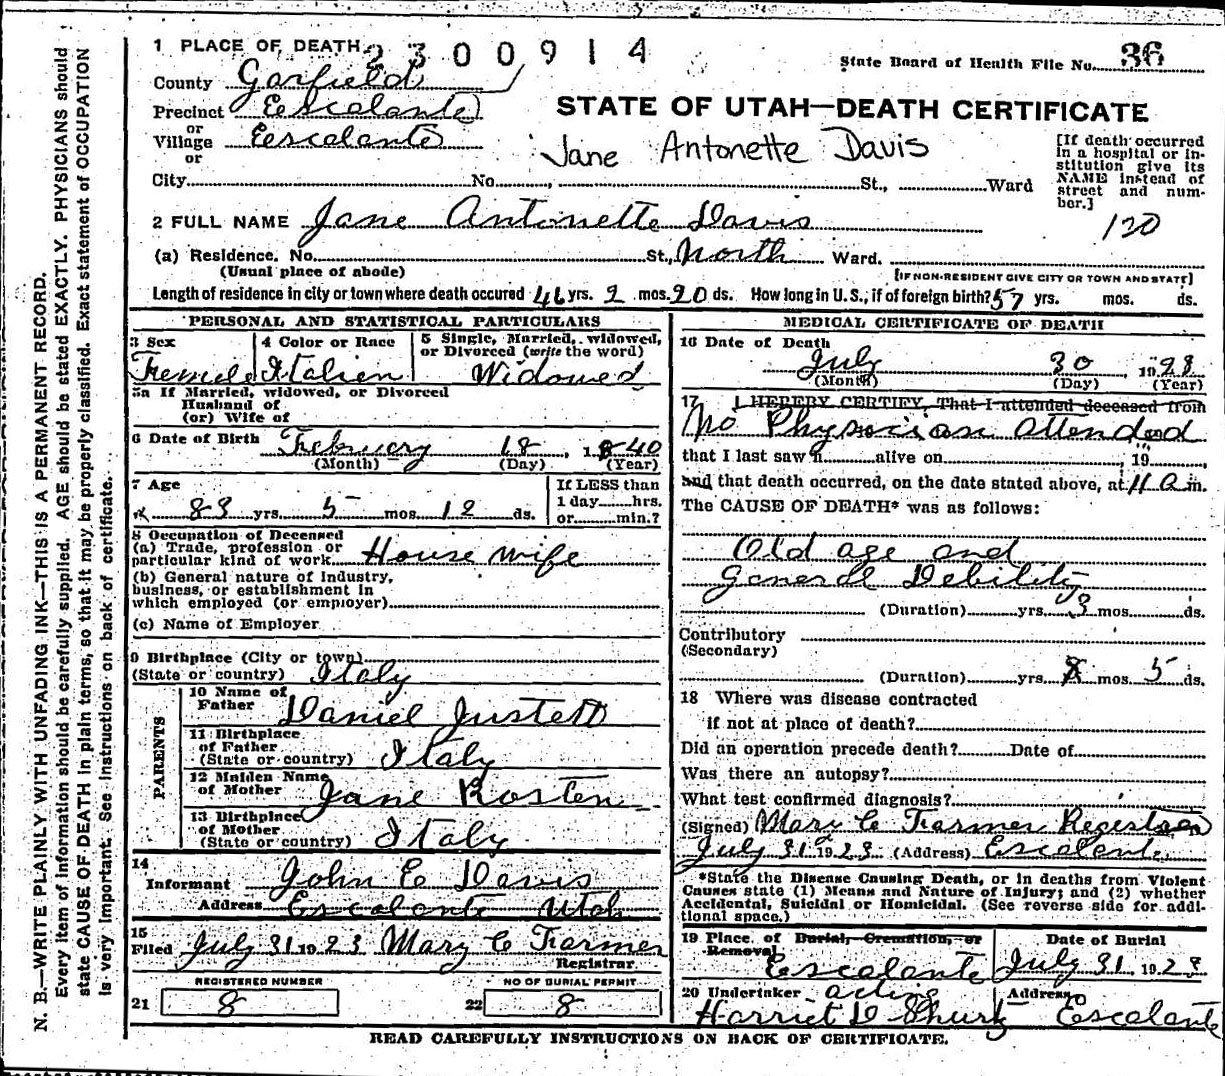 1 PLACE OF DEATH
2300914
State Board of Health File No. 36
County Garfield
Precinct Eescalante
or
Village Eescalante
or
STATE OF UTAH—DEATH CERTIFICATE
Jane Antonette Davis
[If death occurred in a hospital or institution give its NAME instead of street and number.]
City No. St., Ward
120
2 FULL NAME Jane Antonette Davis
(a) Residence. No. St., North Ward.
(Usual place of abode)
[IF NON-RESIDENT GIVE CITY OR TOWN AND STATE]
Length of residence in city or town where death occured 46 yrs. 2 mos. 20 ds. How long in U.S., if of foreign birth? 57 yrs. mos. ds.
PERSONAL AND STATISTICAL PARTICULARS
3 Sex
Female
4 Color or Race
Italien
5 Single, Married, widowed, or Divorced (write the word)
Widowed
5a If Married, widowed, or Divorced
Husband of
(or) Wife of
6 Date of Birth February 18, 1840
(Month) (Day) (Year)
7 Age
83 yrs. 5 mos. 12 ds.
If LESS than
1 day hrs.
or min.?
8 Occupation of Deceased
(a) Trade, profession or
particular kind of work House wife
(b) General nature of Industry,
business, or establishment in
which employed (or employer)
(c) Name of Employer
9 Birthplace (City or town)
(State or country) Italy
PARENTS
10 Name of
Father Daniel Justett
11 Birthplace
of Father
(State or country) Italy
12 Maiden Name
of Mother Jane Rosten
13 Birthplace
of Mother
(State or country) Italy
14
Informant John E Davis
Address Escalante Utah
15
Filed July 31 1923 Mary C Farmer
Registrar
REGISTERED NUMBER
21 8
NO OF BURIAL PERMIT
22 8
MEDICAL CERTIFICATE OF DEATH
16 Date of Death
July 30 1923
(Month) (Day) (Year)
17 I HEREBY CERTIFY, That I attended deceased from
No Physician attended
that I last saw h alive on , 19
and that death occurred, on the date stated above, at 11 a m.
The CAUSE OF DEATH* was as follows:
Old age and
General Debility
(Duration) yrs. 3 mos. ds.
Contributory
(Secondary)
(Duration) yrs. mos. 5 ds.
18 Where was disease contracted
if not at place of death?
Did an operation precede death? Date of
Was there an autopsy?
What test confirmed diagnosis?
(Signed) Mary C Farmer
July 31 1923 (Address) Escalante
*State the Disease Causing Death, or in deaths from Violent
Causes state (1) Means and Nature of Injury; and (2) whether
Accidental, Suicidal or Homicidal. (See reverse side for additional space.)
19 Place of Burial, Cremation, or
Removal
Escalante
Date of Burial
July 31 1923
20 Undertaker acting
Harriet D Shurtz
Address
Escalante
READ CAREFULLY INSTRUCTIONS ON BACK OF CERTIFICATE.
N. B.—WRITE PLAINLY WITH UNFADING INK—THIS IS A PERMANENT RECORD.
Every item of information should be carefully supplied. AGE should be stated EXACTLY. PHYSICIANS should
state CAUSE OF DEATH in plain terms, so that it may be properly classified. Exact statement of OCCUPATION
is very important. See instructions on back of certificate.